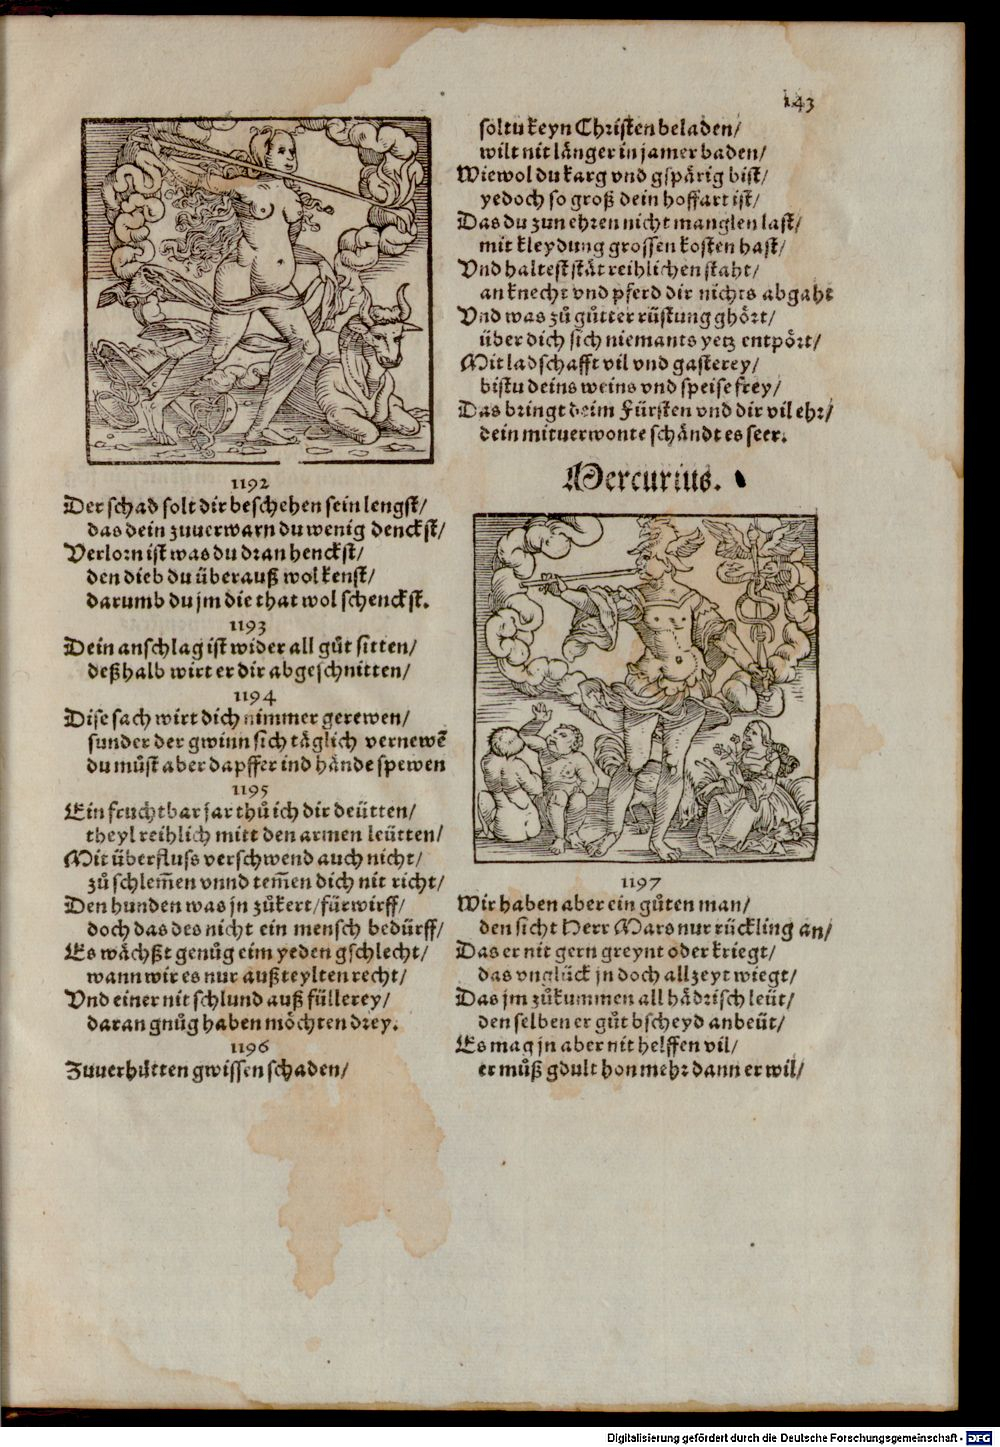 143
1192
Der schad solt dir beschehen sein lengst/
das dein zuuerwarn du wenig denckst/
Verlorn ist was du dran henckst/
den dieb du überauß wol kenst/
darumb du jm die that wol schenckst.
1193
Dein anschlag ist wider all gůt sitten/
deßhalb wirt er dir abgeschnitten/
1194
Dise sach wirt dich nimmer gerewen/
sunder der gwinn sich täglich vernewē
du můst aber dapffer ind hände spewen
1195
Ein fruchtbar jar thů ich dir deütten/
theyl reihlich mitt den armen leütten/
Mit überfluss verschwend auch nicht/
zů schlem̄en vnnd tem̄en dich nit richt/
Den hunden was jn zůkert/fürwirff/
doch das des nicht ein mensch bedürff/
Es wächßt genůg eim yeden gschlecht/
wann wir es nur außteylten recht/
Vnd einer nit schlund auß füllerey/
daran gnůg haben möchten drey.
1196
Zuuerhütten gwissen schaden/
soltu keyn Christen beladen/
wilt nit länger in jamer baden/
Wiewol du karg vnd gspärig bist/
yedoch so groß dein hoffart ist/
Das du zun ehren nicht manglen last/
mit kleydung grossen kosten hast/
Vnd haltest stät reihlichen staht/
an knecht vnd pferd dir nichts abgaht
Vnd was zů gůtter rüstung ghört/
über dich sich niemants yetz entpört/
Mit ladschafft vil vnd gasterey/
bistu deins weins vnd speise frey/
Das bringt deim Fürsten vnd dir vil ehr/
dein mituerwonte schändt es seer.
Mercurius.
1197
Wir haben aber ein gůten man/
den sicht Herr Mars nur rückling an/
Das er nit gern greynt oder kriegt/
das vnglück jn doch allzeyt wiegt/
Das jm zůkummen all hädrisch leüt/
den selben er gůt bscheyd anbeüt/
Es mag jn aber nit helffen vil/
er můß gdult hon mehr dann er wil/
Digitalisierung gefördert durch die Deutsche Forschungsgemeinschaft - DFG